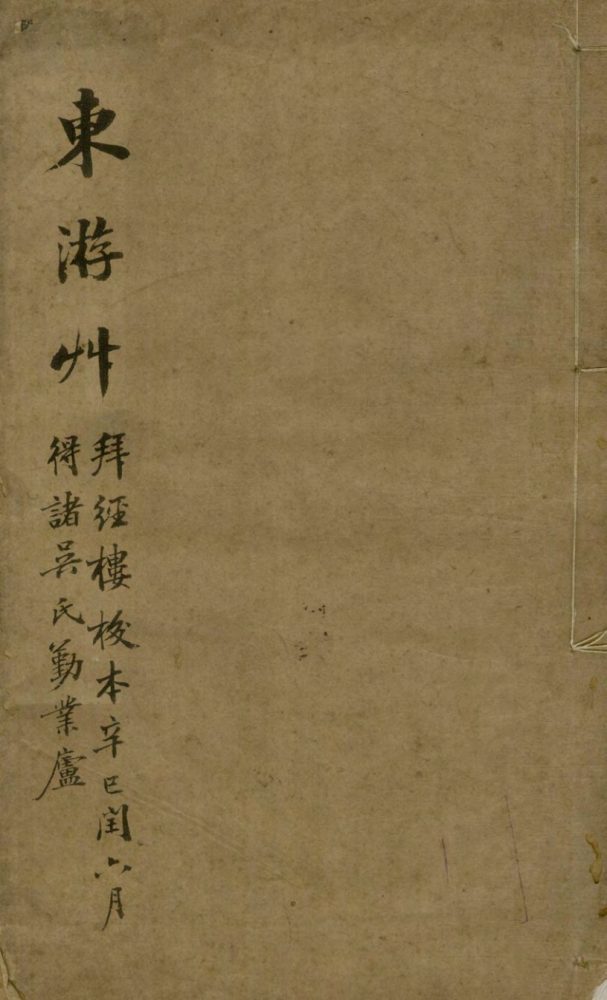 東游艸
拜經樓校本辛巳閏六月
得諸吳氏勤業廬